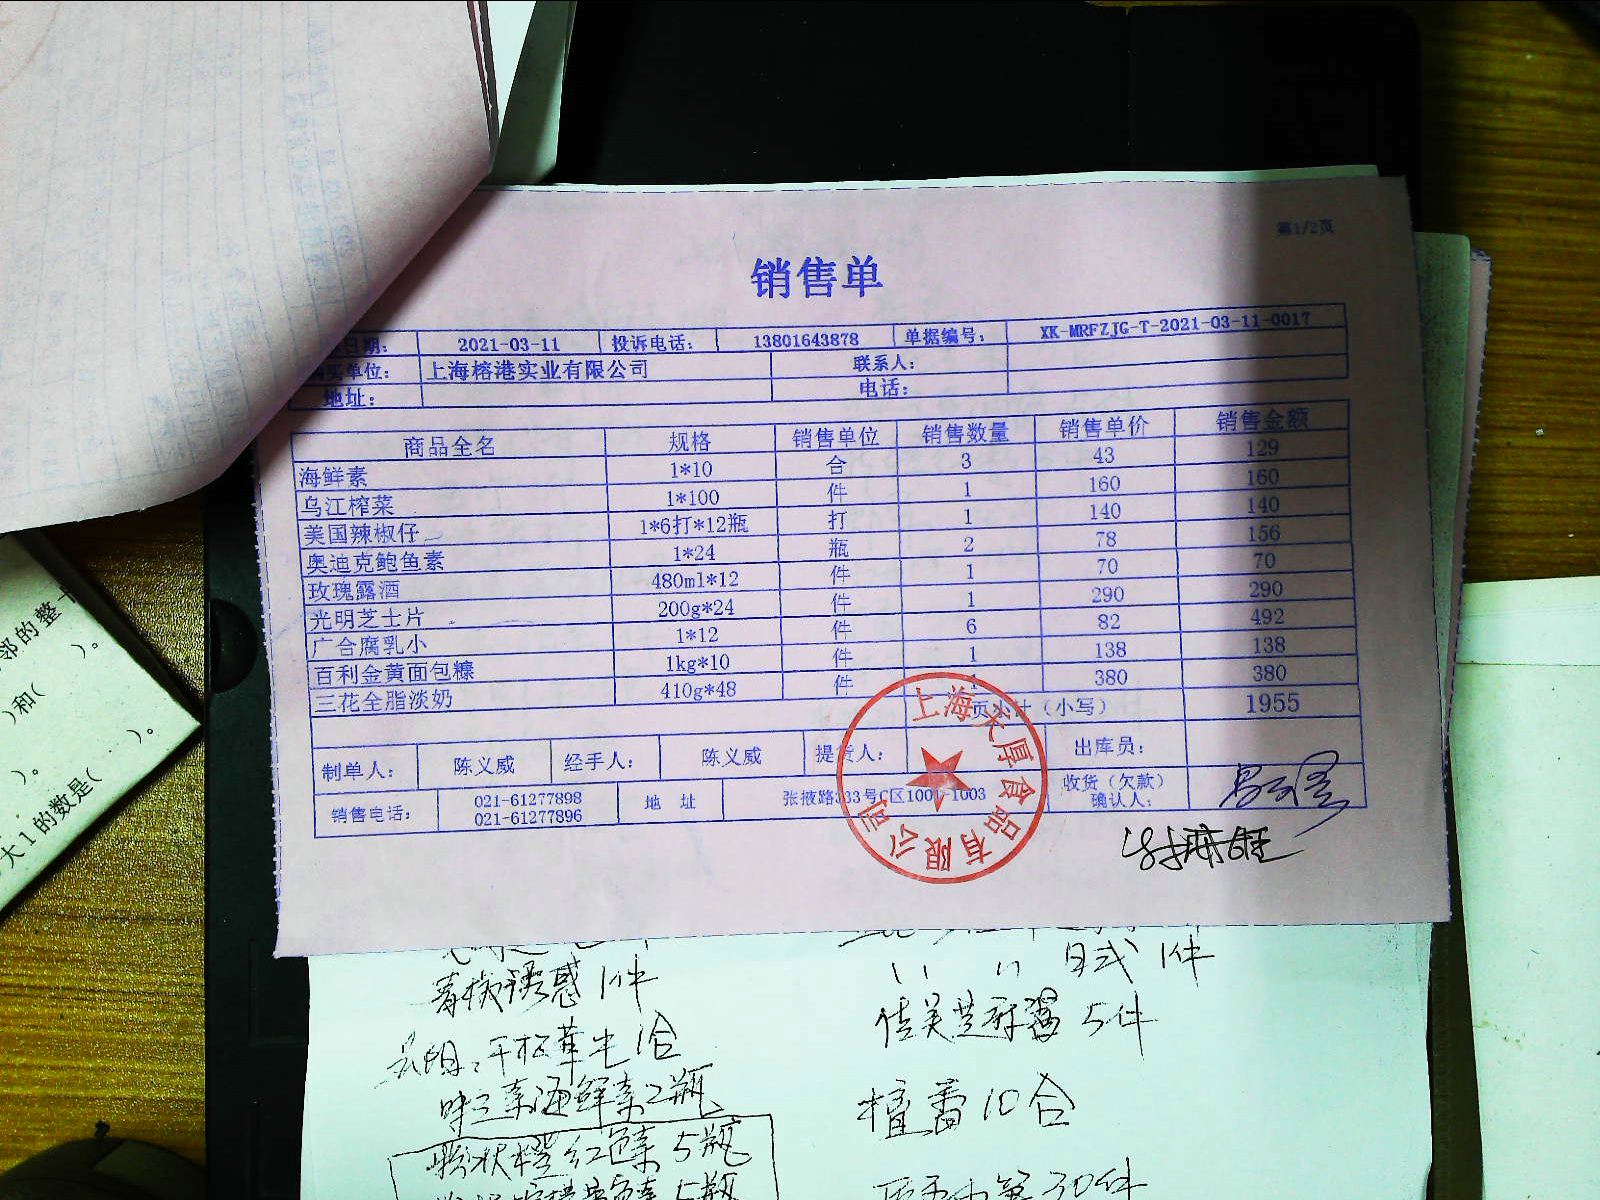 第1/2页
销售单
日期： 2021-03-11 投诉电话： 13801643878 单据编号： XK-MRFZJG-T-2021-03-11-0017
单位： 上海榕港实业有限公司 联系人：
地址： 电话：
商品全名 规格 销售单位 销售数量 销售单价 销售金额
海鲜素 1*10 合 3 43 129
乌江榨菜 1*100 件 1 160 160
美国辣椒仔 1*6打*12瓶 打 1 140 140
奥迪克鲍鱼素 1*24 瓶 2 78 156
玫瑰露酒 480ml*12 件 1 70 70
光明芝士片 200g*24 件 1 290 290
广合腐乳小 1*12 件 6 82 492
百利金黄面包糠 1kg*10 件 1 138 138
三花全脂淡奶 410g*48 件 1 380 380
页小计（小写） 1955
制单人： 陈义威 经手人： 陈义威 提货人： 出库员：
销售电话： 021-61277898 地 址 张掖路333号C区1001-1003 收货（欠款）
021-61277896 确认人：
上海天厚食品有限公司
邻的整十
）。
）和（
）。
）。
大1的数是（
诱惑 1件
日式 1件
5件
1合
海鲜素 2瓶
10合
粉状橙红色素 5瓶
5瓶
30件